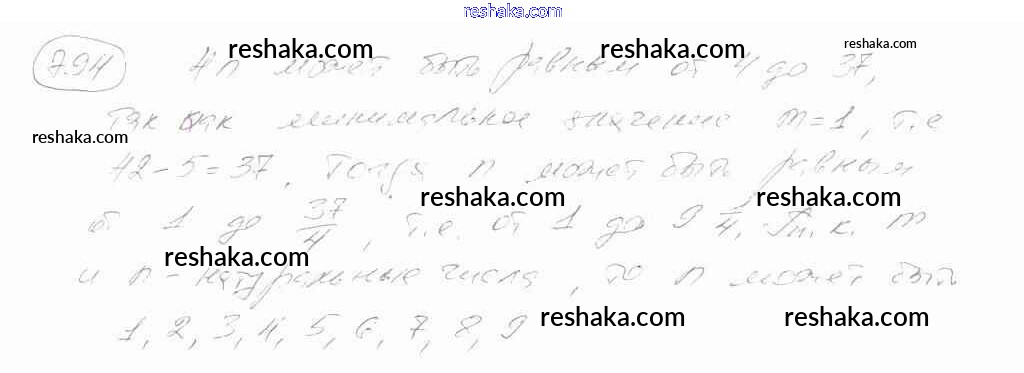 reshaka.com
7.94
4n может быть равным от 4 до 37,
так как минимальное значение m=1, т.е
42-5=37. Тогда n может быть равным
от 1 до 37/4, т.е. от 1 до 9 1/4. Т.к. m
и n - натуральные числа, то n может быть
1, 2, 3, 4, 5, 6, 7, 8, 9
reshaka.com
reshaka.com
reshaka.com
reshaka.com
reshaka.com
reshaka.com
reshaka.com
reshaka.com
reshaka.com